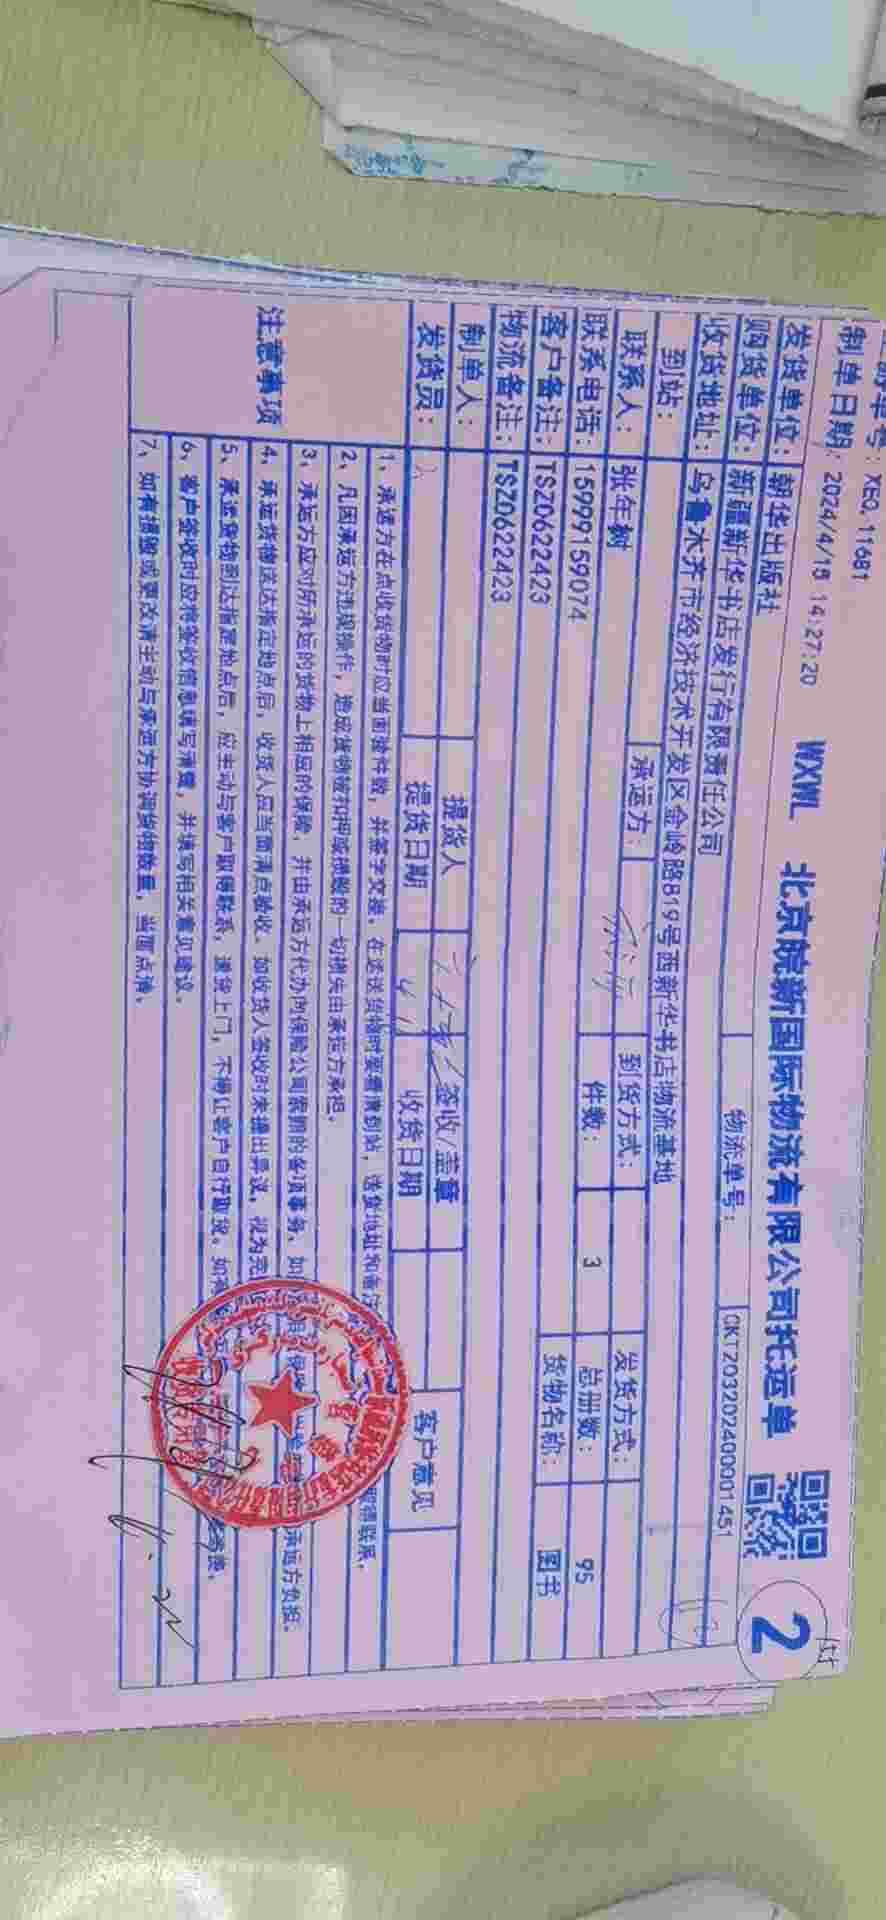 XEQ, 11681
制单日期: 2024/4/18 14:27:20 WXWL 北京皖新国际物流有限公司托运单
2
发货单位: 朝华出版社 物流单号: CKT20320240001451
购货单位: 新疆新华书店发行有限责任公司
收货地址: 乌鲁木齐市经济技术开发区金岭路819号西新华书店物流基地
到站: 承运方: 到货方式: 发货方式:
联系人: 张年树 件数: 3 总册数: 95
联系电话: 15999159074 货物名称: 图书
客户备注: TSZ0622423
物流备注: TSZ0622423
制单人: 提货人 签收/盖章 客户意见
发货员: 提货日期 收货日期
注意事项
1、承运方在点收货物时应当面验件数, 并签字交接。在发送货物时要看清到站, 送货地址和备注
取得联系。
2、凡因承运方违规操作, 造成货物被扣押或损毁的一切损失由承运方承担。
3、承运方应对所承运的货物上相应的保险, 并由承运方代办向保险公司索赔的各项事务, 如
承运方负担。
4、承运货物送达指定地点后, 收货人应当面清点验收。如收货人签收时未提出异议, 视为完
5、承运货物到达指定地点后, 应主动与客户取得联系, 送货上门, 不得让客户自行取货。如
6、客户签收时应将签收信息填写清楚, 并填写相关意见建议。
7、如有损毁或更改请主动与承运方协调货物数量, 当面点清。